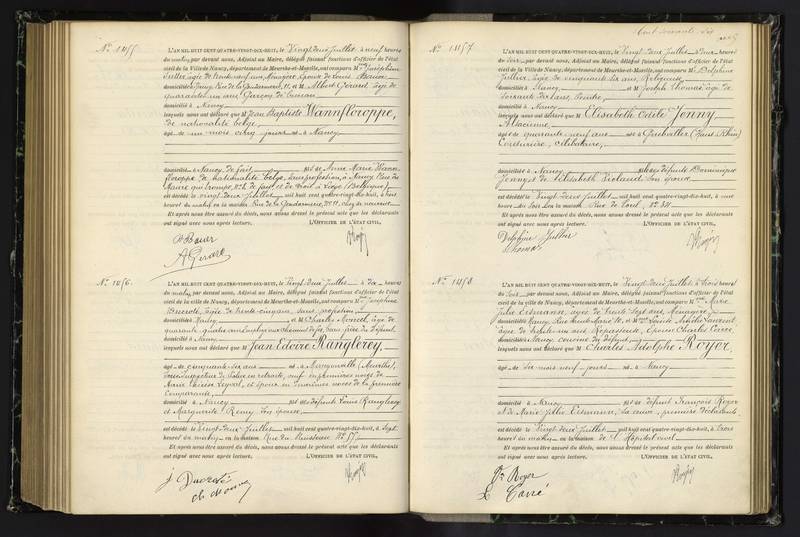 N° 1455
L'AN MIL HUIT CENT QUATRE-VINGT-DIX-HUIT, le Vingt deux Juillet à neuf heures
du matin, par devant nous, Adjoint au Maire, délégué faisant fonctions d'officier de l'état
civil de la Ville de Nancy, département de Meurthe-et-Moselle, ont comparu Mme Joséphine
âgée de trente neuf ans, Ménagère, épouse de Louis
domiciliée à Nancy, Rue de la Gendarmerie, 11, et M. Albert Gérard, âgé de
quarante un ans, Garçon de bureau
domicilié à Nancy
lesquels nous ont déclaré que M Jean Baptiste Wannfloroppe,
de nationalité belge,
âgé de un mois cinq jours né à Nancy
domicilié à Nancy de fait fils de Anne Marie Wann
floroppe de nationalité belge, sans profession, à Nancy Rue du
Maure qui trompe, de fait et de droit à Liège (Belgique)
est décédé le vingt deux Juillet mil huit cent quatre-vingt-dix-huit, à trois
heures du matin en la maison Rue de la Gendarmerie, N° 11, chez sa nourrice
Et après nous être assuré du décès, nous avons dressé le présent acte que les déclarants
ont signé avec nous après lecture. L'OFFICIER DE L'ÉTAT CIVIL,
A Gérard
N° 1456
L'AN MIL HUIT CENT QUATRE-VINGT-DIX-HUIT, le Vingt deux Juillet à dix heures
du matin, par devant nous, Adjoint au Maire, délégué faisant fonctions d'officier de l'état
civil de la ville de Nancy, département de Meurthe-et-Moselle, ont comparu Mme Joséphine
âgée de trente cinq ans, sans profession,
domiciliée à Nancy et M Charles âgé de
quarante quatre ans, Employé aux chemins de fer, beau frère du défunt
domicilié à Nancy
lesquels nous ont déclaré que M Jean Edoire Ranglerey,
âgé de cinquante six ans né à (Meurthe),
Sous Inspecteur de Police en retraite, veuf en premières noces de
Marie Thérèse et époux en deuxièmes noces de la première
Comparante,
domicilié à Nancy fils de défunts Louis Ranglerey
et Marguerite Remy son épouse,
est décédé le Vingt deux Juillet mil huit cent quatre-vingt-dix-huit, à sept
heures du matin en la maison Rue du N° 57
Et après nous être assuré du décès, nous avons dressé le présent acte que les déclarants
ont signé avec nous après lecture. L'OFFICIER DE L'ÉTAT CIVIL,
N° 1457
L'AN MIL HUIT CENT QUATRE-VINGT-DIX-HUIT, le Vingt deux Juillet à deux heures
du soir, par devant nous, Adjoint au Maire, délégué faisant fonctions d'officier de l'état
civil de la Ville de Nancy, département de Meurthe-et-Moselle, ont comparu Mme Delphine
Jullier, âgée de cinquante six ans, Religieuse
domiciliée à Nancy et M Joseph Thomas âgé de
soixante dix ans,
domicilié à Nancy
lesquels nous ont déclaré que M Elisabeth Odile Jenny,
Alsacienne,
âgée de quarante neuf ans née à Guebwiller (Haut Rhin)
Couturière, célibataire,
domiciliée à Nancy fille de défunts Dominique
Jenny et de Elisabeth son épouse
est décédée le Vingt deux Juillet mil huit cent quatre-vingt-dix-huit, à une
heure du soir en la maison Rue de Toul,
Et après nous être assuré du décès, nous avons dressé le présent acte que les déclarants
ont signé avec nous après lecture. L'OFFICIER DE L'ÉTAT CIVIL,
Delphine Jullier
Thomas
N° 1458
L'AN MIL HUIT CENT QUATRE-VINGT-DIX-HUIT, le Vingt deux Juillet à trois heures
du soir, par devant nous, Adjoint au Maire, délégué faisant fonctions d'officier de l'état
civil de la ville de Nancy, département de Meurthe-et-Moselle, ont comparu Mme Marie
Julie Eismann, âgée de trente sept ans, Ménagère
domiciliée à Nancy, Rue et Mme
âgée de trente un ans, Repasseuse, épouse Charles Carré
domiciliée à Nancy cousine du défunt,
lesquels nous ont déclaré que M Charles Adolphe Royer,
âgé de six mois neuf jours né à Nancy
domicilié à Nancy fils de défunt François Royer
et de Marie Julie Eismann, sa veuve, première déclarante
est décédé le Vingt deux Juillet mil huit cent quatre-vingt-dix-huit, à trois
heures du matin en la maison de l'Hôpital civil
Et après nous être assuré du décès, nous avons dressé le présent acte que les déclarants
ont signé avec nous après lecture. L'OFFICIER DE L'ÉTAT CIVIL,
Vve Royer
L Carré